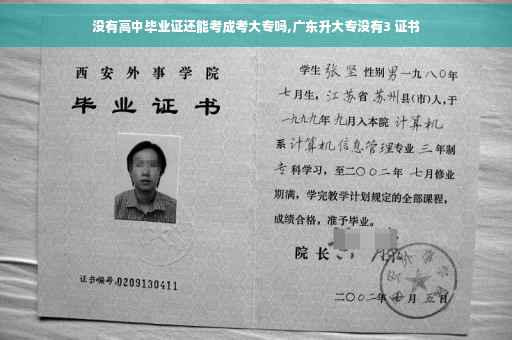 没有高中毕业证还能考成考大专吗,广东升大专没有3 证书
西安外事学院
毕业证书
证书编号:0209130411
学生 张坚 性别 男 一九八〇年
七月生, 江苏省 苏州 县(市)人,于
一九九九年 九月入本院 计算机
系 计算机信息管理 专业 三 年制
专 科学习, 至二〇〇二年 七月修业
期满, 学完教学计划规定的全部课程,
成绩合格, 准予毕业。
院长
二〇〇二年 月 五日